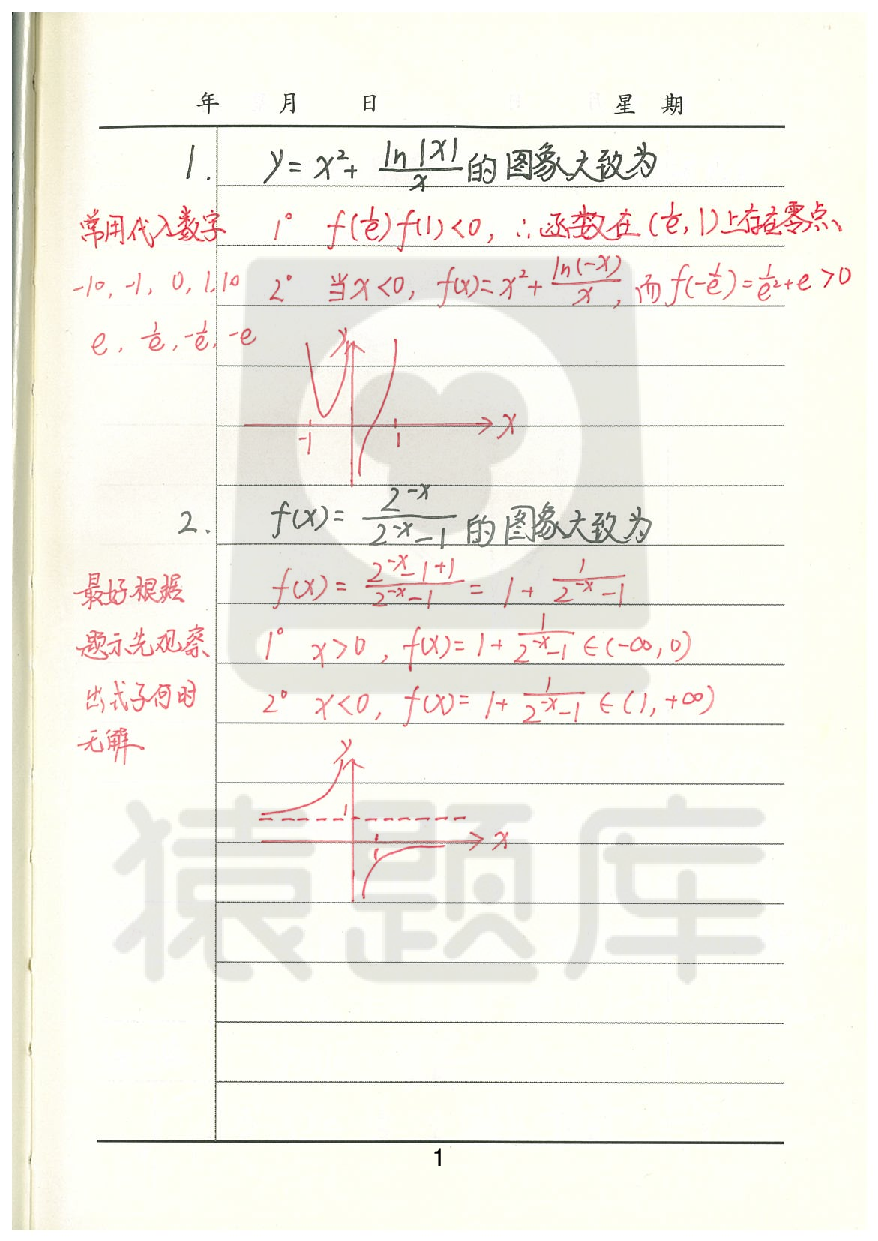 年 月 日 星 期
1. y=x²+ln|x|/x 的图象大致为
常用代入数字 1° f(1/e)f(1)<0, ∴函数在(1/e,1)上存在零点、
-10, -1, 0, 1, 10 2° 当x<0, f(x)=x²+ln(-x)/x, 而f(-1/e)=1/e²+e>0
e, 1/e, -1/e, -e
y
-1 1 x
2. f(x)=2^{-x}/(2^{-x}-1) 的图象大致为
最好根据 f(x)=(2^{-x}-1+1)/(2^{-x}-1)=1+1/(2^{-x}-1)
题示先观察 1° x>0, f(x)=1+1/(2^{-x}-1)∈(-∞,0)
出式子何时 2° x<0, f(x)=1+1/(2^{-x}-1)∈(1,+∞)
无解
y
1
x
1
猿题库
1